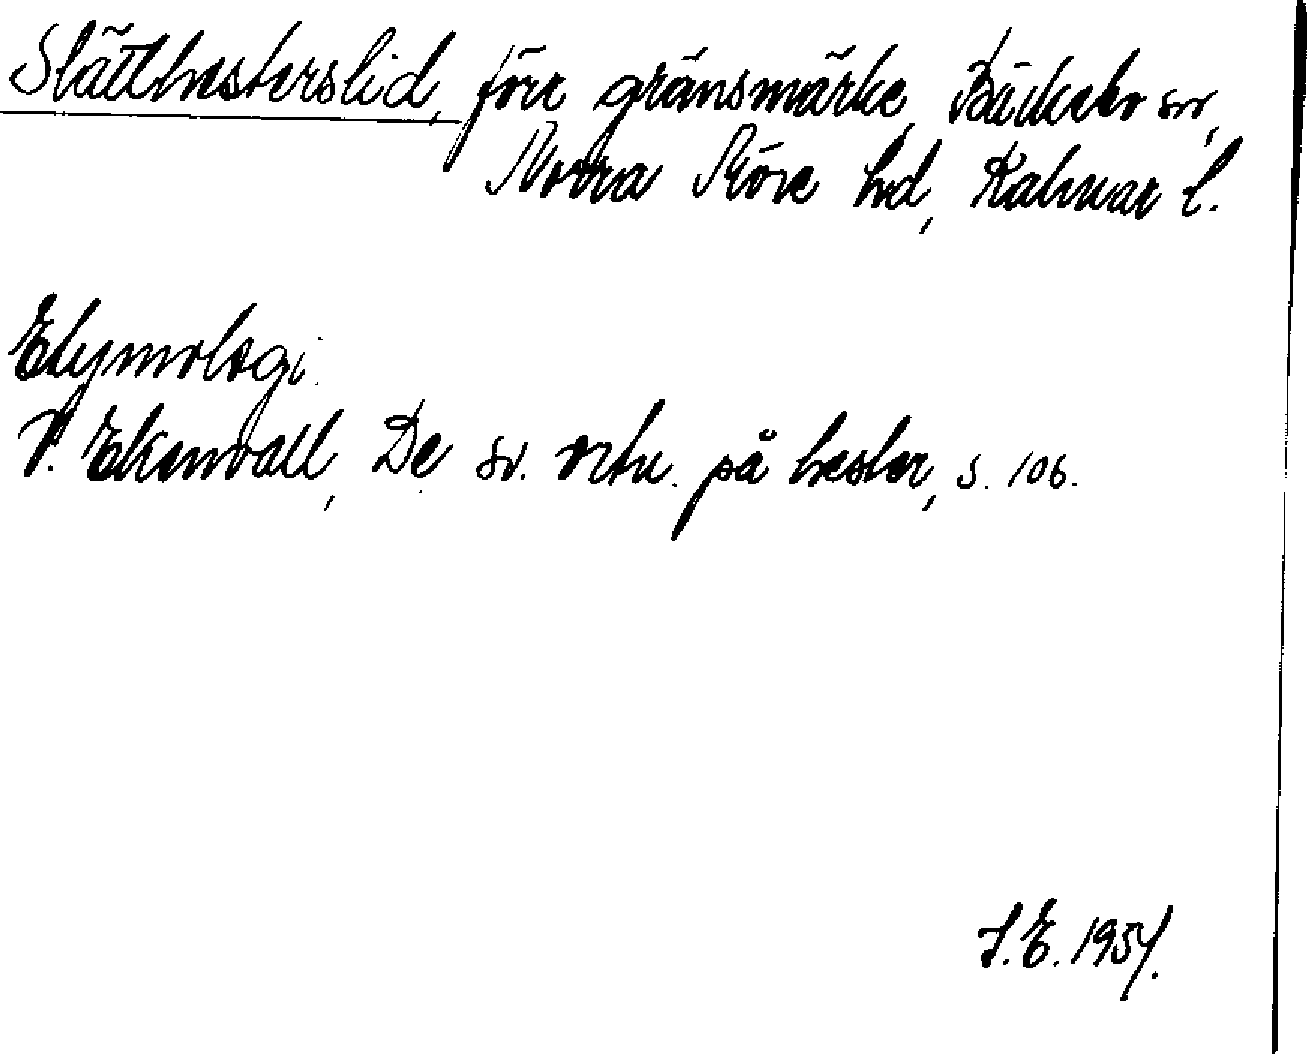 Slätthesterslid, förr gränsmärke, Bäckebo sn,
Norra Möre hd, Kalmar l.
Etymologi.
V. Ekenvall, De sv. ortn. på hester, s. 106.
I.E. 1957.